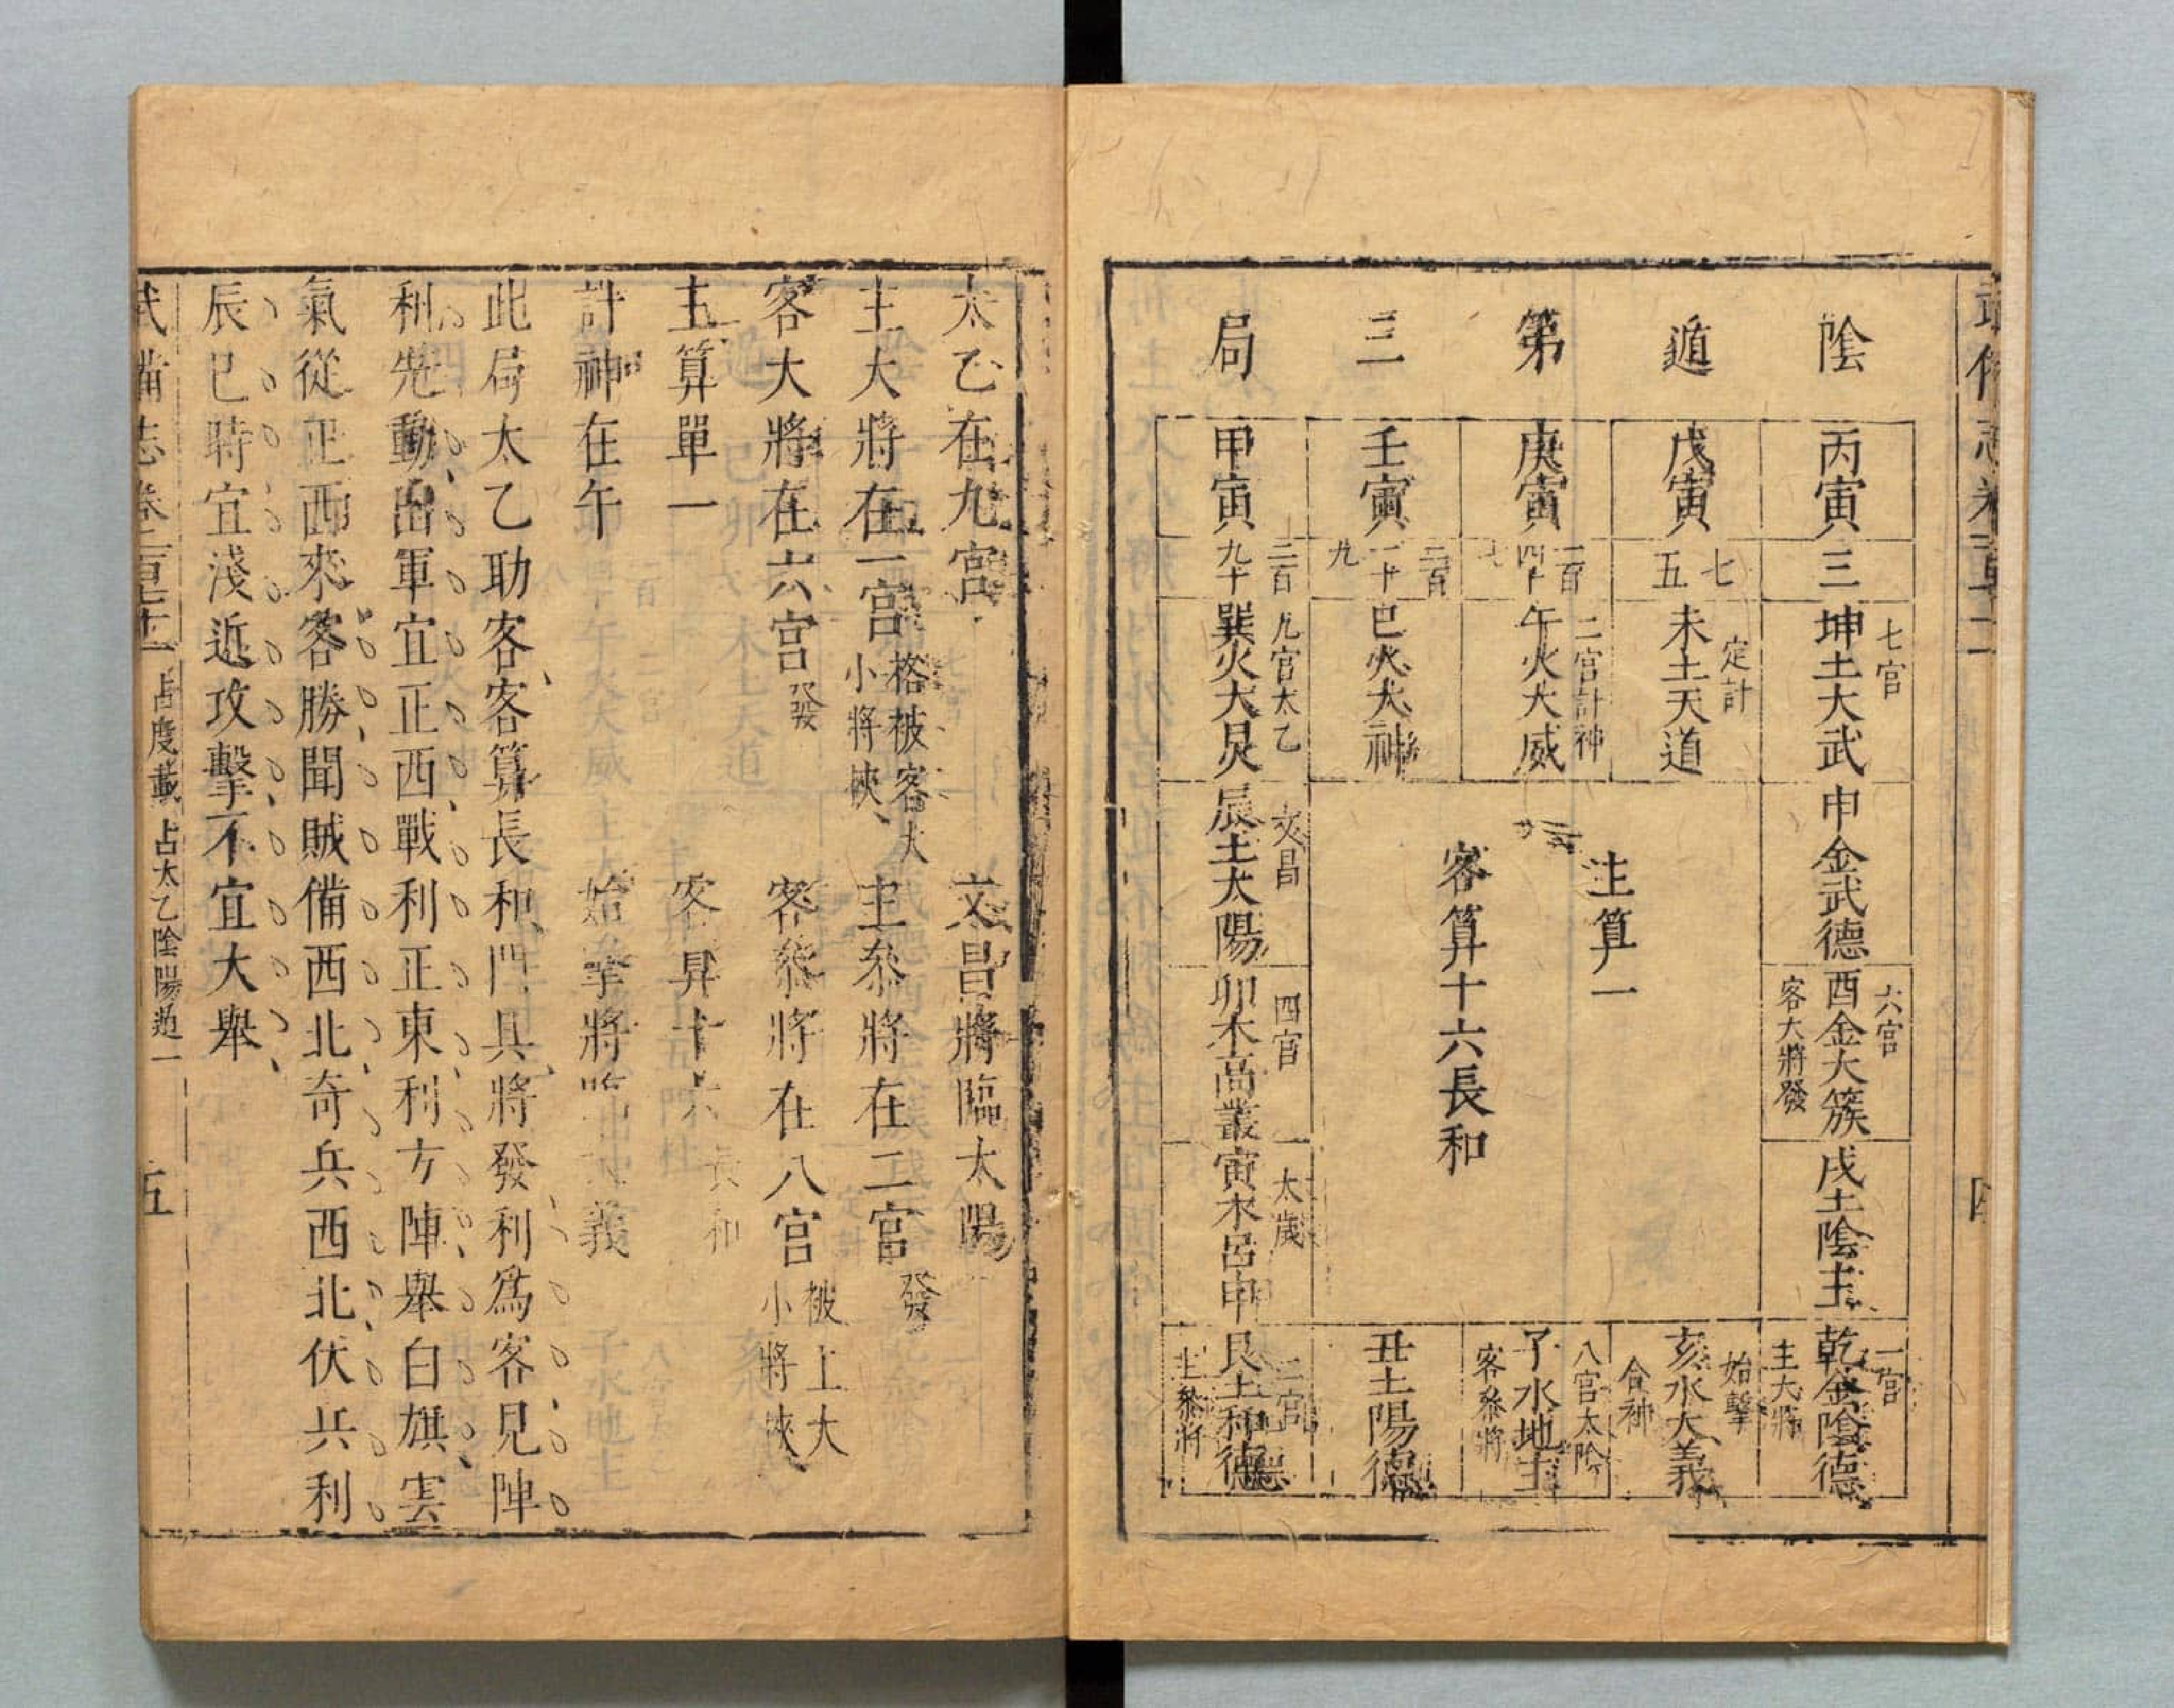 陰遁第三局
丙寅 三
戊寅 七五
庚寅 二百四十
壬寅 二百二十九
甲寅 三百九十
七宫 坤土大武
定計 未土天道
二宫計神 午火大威
巳火大神
九宫太乙 巽火大炅
申金武德
文昌 辰土太陽
六宫 酉金大簇 客大將發
四宫 卯木高叢
戌土陰主
太歲 寅木呂申
主算一
客算十六長和
一宫 乾金陰德 主大將
始擊 亥水大義 合神
八宫太阴 子水地主 客叅將
丑土陽德
三宫 艮土和德 主叅將
太乙在九宫 文昌將臨太陽
主大將在一宫 格被客大小將挾 主叅將在三宫 發
客大將在六宫 發 客叅將在八宫 被主大小將挾
主算單一 客算十六 長和
計神在午 始擊將臨 義
此局太乙助客客算長和門具將發利爲客見陣
利先動出軍宜正西戰利正東利方陣舉白旗雲
氣從正西來客勝聞賊備西北奇兵西北伏兵利
辰巳時宜淺近攻擊不宜大舉
武備志卷一百七十二 占度載 占太乙陰陽遁一 五